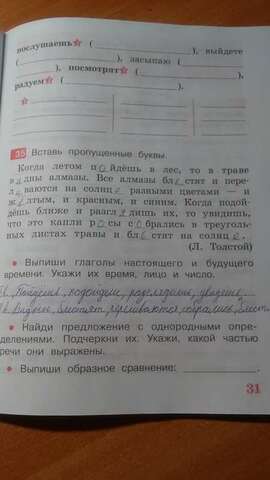 послушаешь☆ (____________), выйдете
(____________), засыпаю (____________
________), посмотрят☆ (____________),
радуем☆ (____________).
☆
35 Вставь пропущенные буквы.
Когда летом пойдёшь в лес, то в траве
видны алмазы. Все алмазы блестят и пере-
ливаются на солнце разными цветами — и
жёлтым, и красным, и синим. Когда подой-
дёшь ближе и разглядишь их, то увидишь,
что это капли росы собрались в треуголь-
ных листах травы и блестят на солнце.
(Л. Толстой)
• Выпиши глаголы настоящего и будущего
времени. Укажи их время, лицо и число.
подойдёшь,
блестят,
• Найди предложение с однородными опре-
делениями. Подчеркни их. Укажи, какой частью
речи они выражены.
• Выпиши образное сравнение: ____________.
31